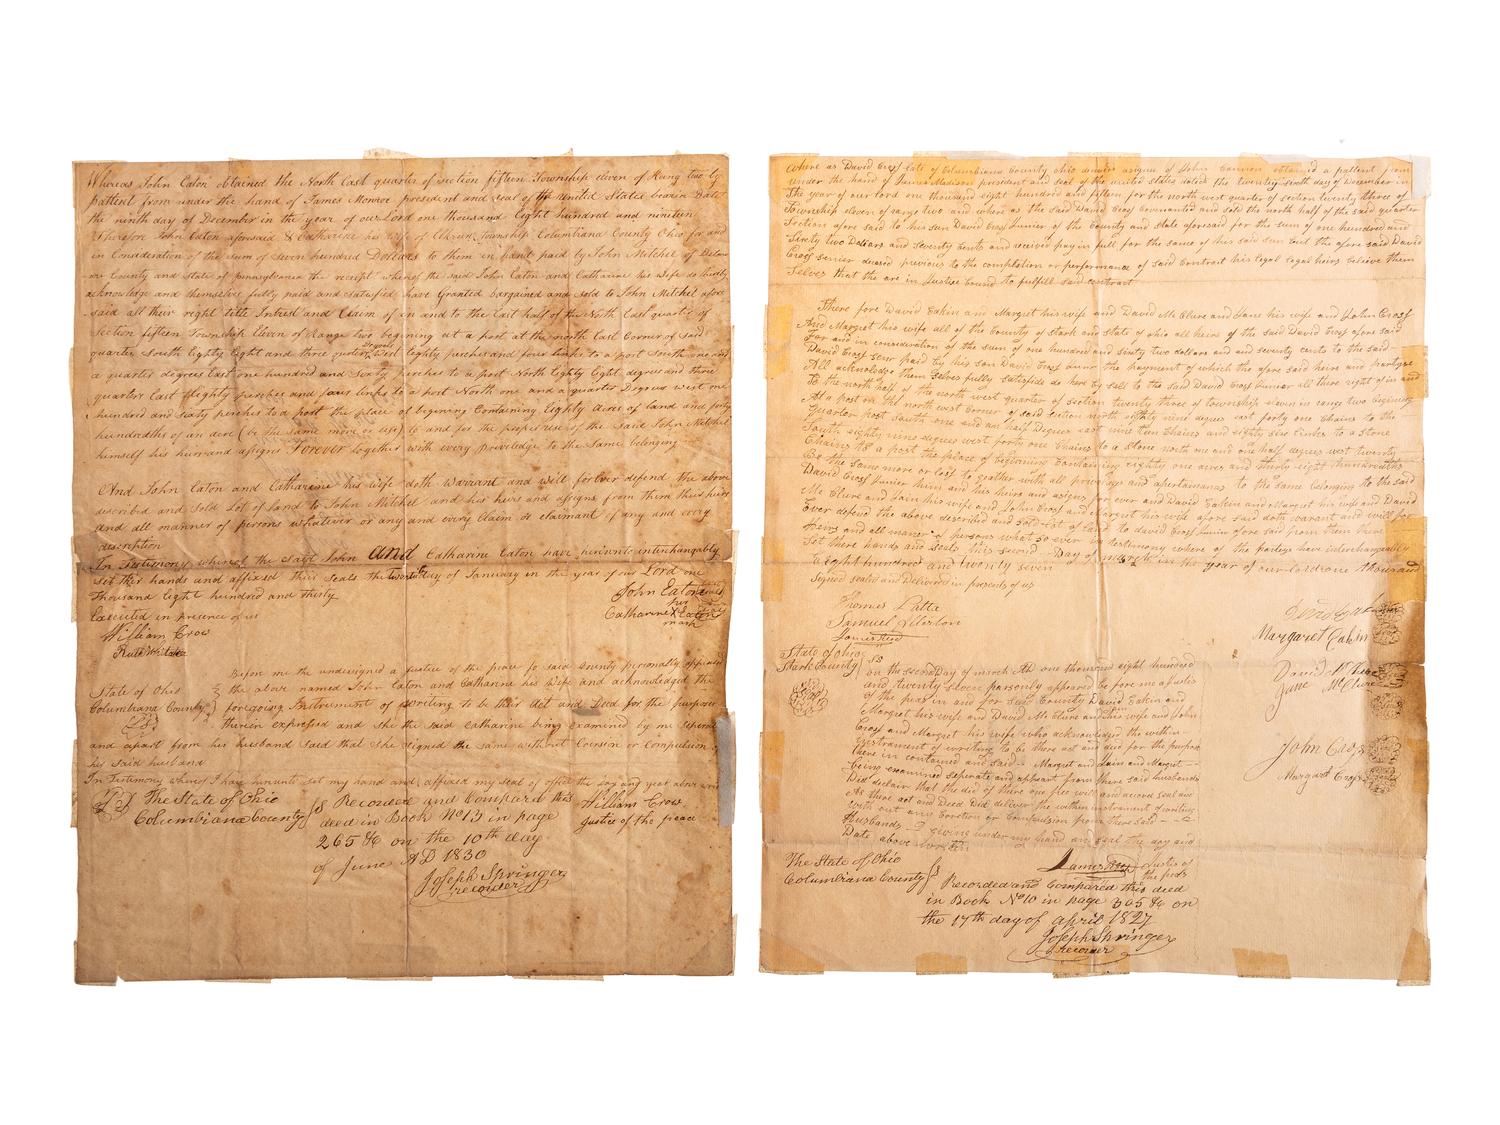 Whereas John Eaton obtained the North East quarter of section fifteen Township eleven of Rang two by
pattent from under the hand of James Monroe president and seal of the united States bearin Date
the ninth day of December in the year of our Lord one thousand Eight hundred and nineteen
Therefore John Eaton aforesaid & Catharine his wife of Township Columbiana County Ohio for and
in Consideration of the sum of seven hundred Dollars to them in hand paid by John Mitchel of Beav
er County and State of pennsylvania the receipt whereof the said John Eaton and Catharine his Wife do thirby
acknowledge and themselve fully paid and satisfied have Granted bargained and sold to John Mitchel afore
said all their right title Intrest and Claim of in and to the East half of the North East quarter of
section fifteen Township Eleven of Range two begening at a post at the north East Corner of said
quarter South Eighty Eight and three quarters Degrees West Eighty perches and four links to a post South one and
a quarter degrees East one hundred and Sixty perches to a post North Eighty Eight degrees and three
quarter East Eighty perches and four links to a post North one and a quarter Degrees west one
hundred and Sixty perches to a post the place of begening Containing Eighty Acres of land and forty
hundredths of an acre (be the same more or less) to and for the proper use of the said John Mitchel
himself his heirs and assigns Forever together with every priviledge to the Same belonging
And John Eaton and Catharine his wife doth Warrant and will forever defend the above
described and Sold Lot of Land to John Mitchel and his heirs and assigns from them their heirs
and all manner of persons whatever or any and every Claim or claimant of any and every
description
In Testimony whereof the Said John and Catharine Eaton have hereunto interchangably
set their hands and affixed their seals the day of January in the year of our Lord one
Thousand Eight hundred and thirty
Executed in presence of us
John Eaton
her
Catharine X Eaton
mark
William Crow
Before me the undersigned a justice of the peace fo said County personally appeared
State of Ohio
Columbiana County
the above named John Eaton and Catharine his Wife and acknowledged the
foregoing Instrument of writing to be their act and Deed for the purposes
therein expressed and she the said Catharine being examined by me seperate
and apart from his husband said that she signed the same without Coersion or Compulsion of
his said husband
In Testimony whereof I have hereunto set my hand and affixed my seal of office the day and year above
The State of Ohio
Columbiana County ss
Recorded and Compard this
deed in Book No 13 in page
265 &c on the 10th day
of June AD 1830
Joseph Springer
recorder
William Crow
Justice of the peace
Where as David Crosf late of Columbiana County ohio asigne of John Cannon obtained a pattent from
under the hand of James Madison president and seal of the united states dated the twenty sixth day of December in
The year of our lord one thousand eight hundred and fifteen for the north west quarter of section twenty three of
Township eleven of range two and where as the said David Crosf covenanted and sold the north half of the said quarter
Section afore said to his sun David Crosf Junier of the County and state aforesaid for the sum of one hundred and
Sixty two Dollars and seventy Cents and received pay in full for the same of his said sun but the afore said David
Crosf senier previous to the completion or performance of said Contract his legal heirs believe them
Selves that the are in Justice bound to fulfill said contract
There fore David Eakin and Margret his wife and David Mc Clure and Jane his wife and John Crosf
And Margret his wife all of the County of Stark and State of ohio all heirs of the said David Crosf afore said
For and in consideration of the sum of one hundred and sixty two dollars and seventy cents to the said
David Crosf senr paid by his son David Crosf Junr the payment of which the afore said heirs
All acknoledge them selves fully satisfide do here by sell to the said David Crosf Junier all there right of in and
To the north half of the north west quarter of section twenty three of township eleven in range two begining
At a post on the north west corner of said section north eighty nind degrees east forty one Chains to the
Quarter post south one and an half Degrees east nine teen Chains and eighty Links to a stone
South eighty nine degres west forty one Chains to a stone north one and one half degres west twenty
Chains to a post the place of begining Containing eighty one acres and thirty eight hundredths
Be the same more or less to geather with all privaleges and apertanances to the same belonging to the said
David Crosf Junier heirs and his heirs and asigns for ever and David Eakin and Margret his wife and David
Mc Clure and Jain his wife and John Crosf and Margret his wife afore said doth warant and will for
Ever defend the above described and sold lot of land to david Crosf Junier afore said from them there
Heirs and all maner of persons what so ever in testimony where of the partys have interchangeably
Set there hands and seals this second Day of march in the year of our lord one thousand
Eight hundred and twenty seven
Signed sealed and Delivered in presents of us
Thomas Latta
Samuel
James Reed
Margaret Eakin
David McClure
Jane McClure
John Crosf
Margaret Crosf
State of ohio
Stark County ss
on the second Day of march AD one thousand eight hundred
and twenty seven parsonly appeared be fore me a Justis
of the peas in and for said County David Eakin and
Margret his wife and David Mc Clure and his wife and John
Crosf and Margret his wife who acknowledg the within
instrament of writing to be there act and deed for the purpose
there in contained and said Margret and Jain and Margret
being examined seperate and appart from there said husbands
Did declair that the did of there one free will and accord seal and
As there act and Deed Did deliver the within instrament of writing
with out any Coretion or Compulsion from there said
Husbands giving under my hand and seal the day and
Date above writen
James Reed Justis of
the peas
The State of Ohio
Columbiana County ss
Recorded and Compared this deed
in Book No 10 in page 305 &c on
the 17th day of april 1827
Joseph Springer
recorder